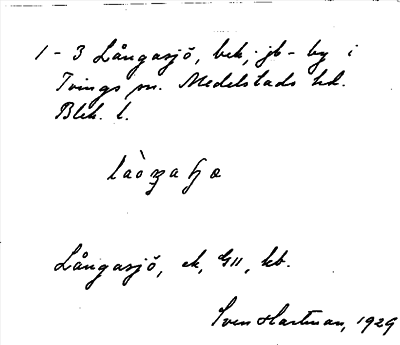 1-3 Långasjö, bek, jb-by i
Tvings sn. Medelstads hd.
Blek. l.
Långasjö, ek, GII, kb.
Sven Hartman, 1929